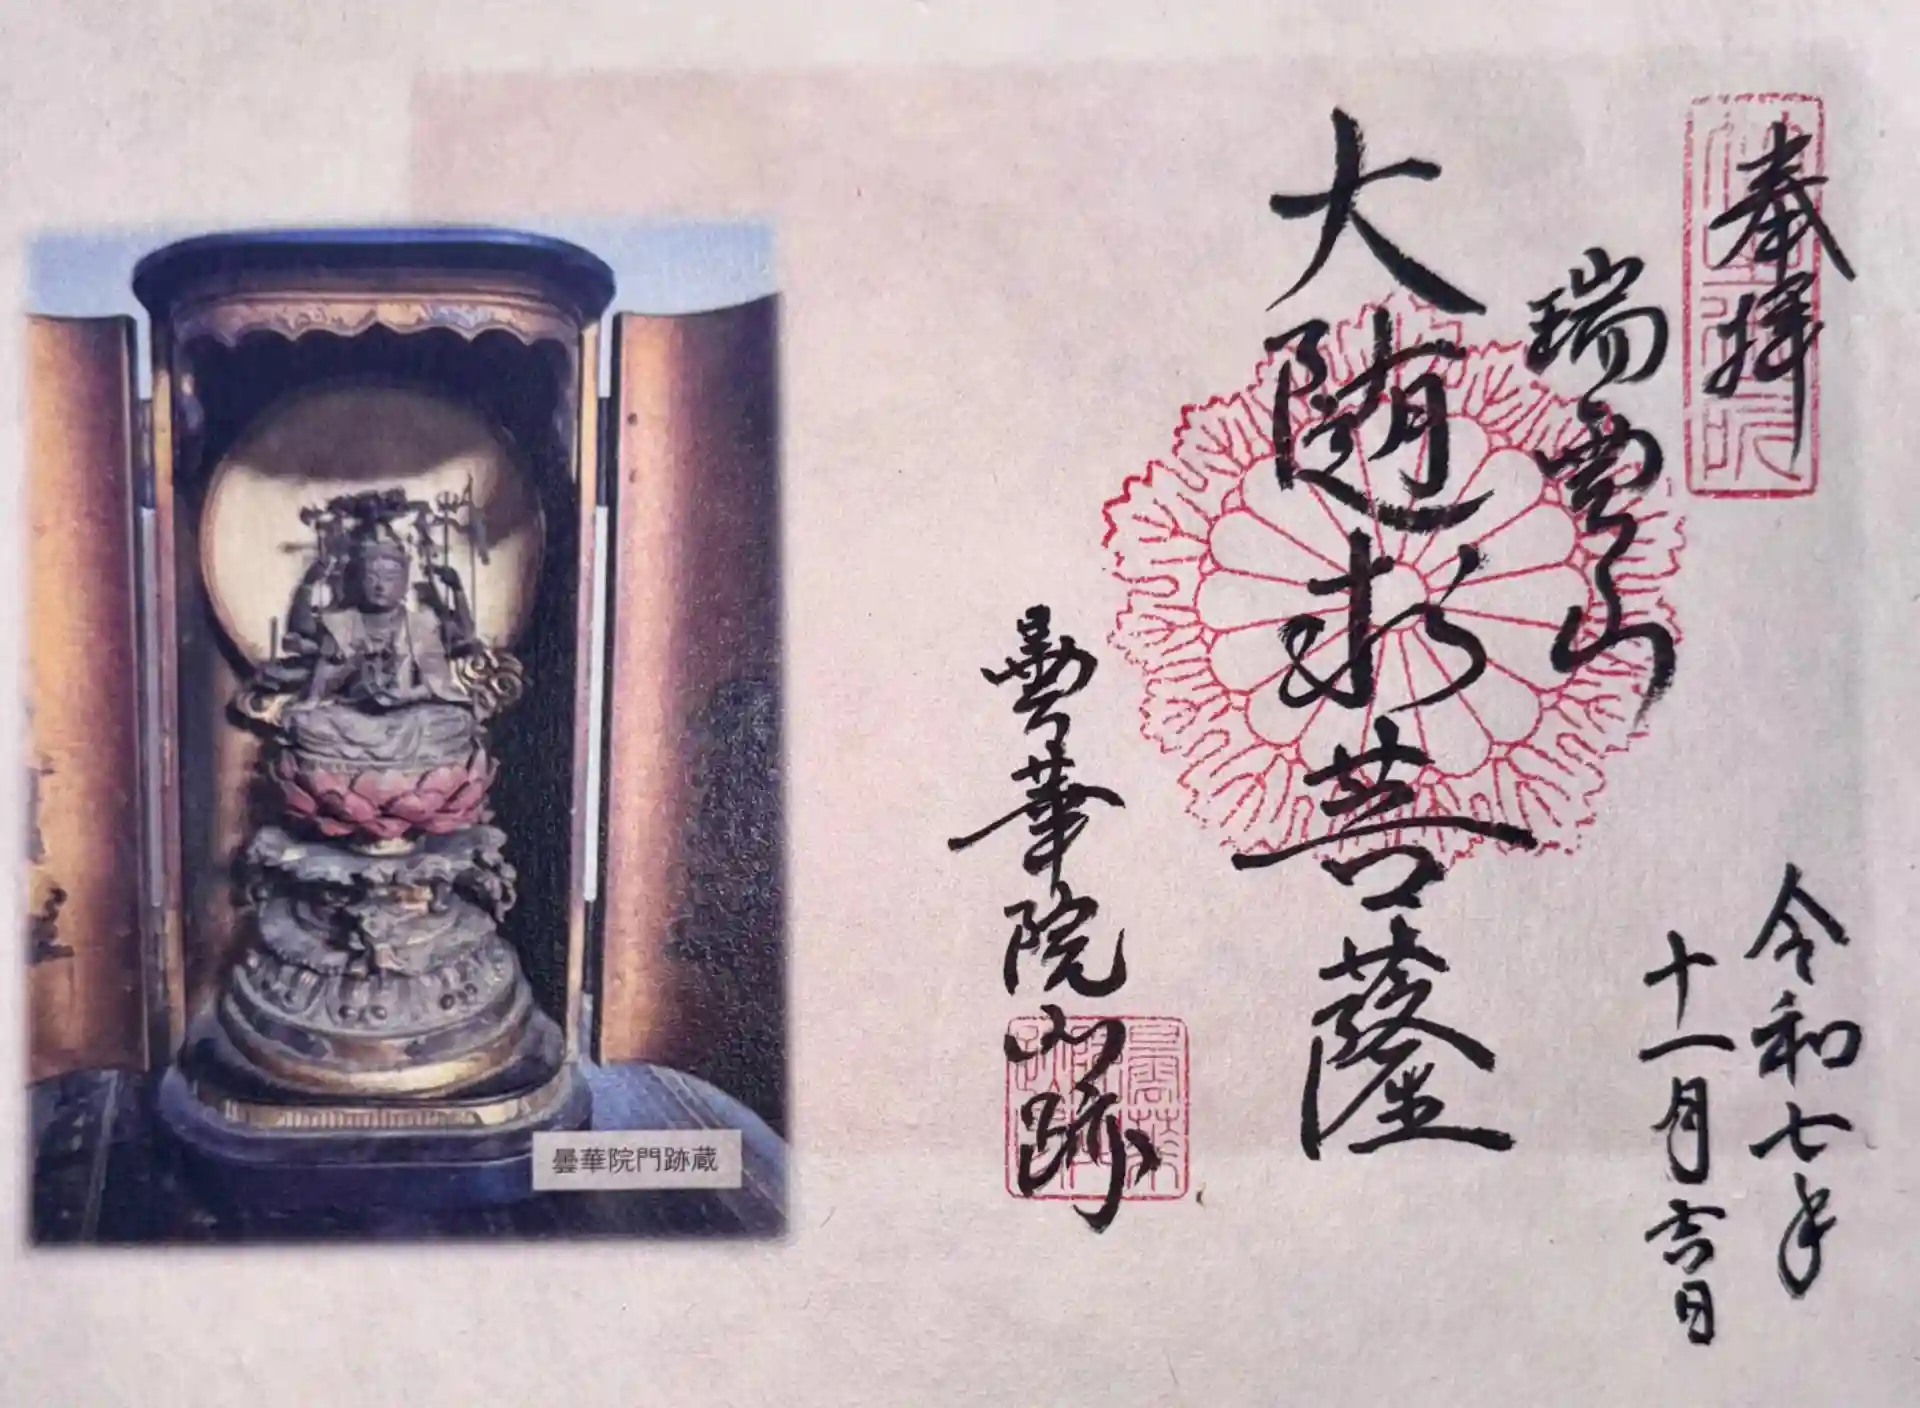 奉拝
瑞雲山
大随求菩薩
令和七年
十一月吉日
曇華院門跡
曇華院門跡蔵